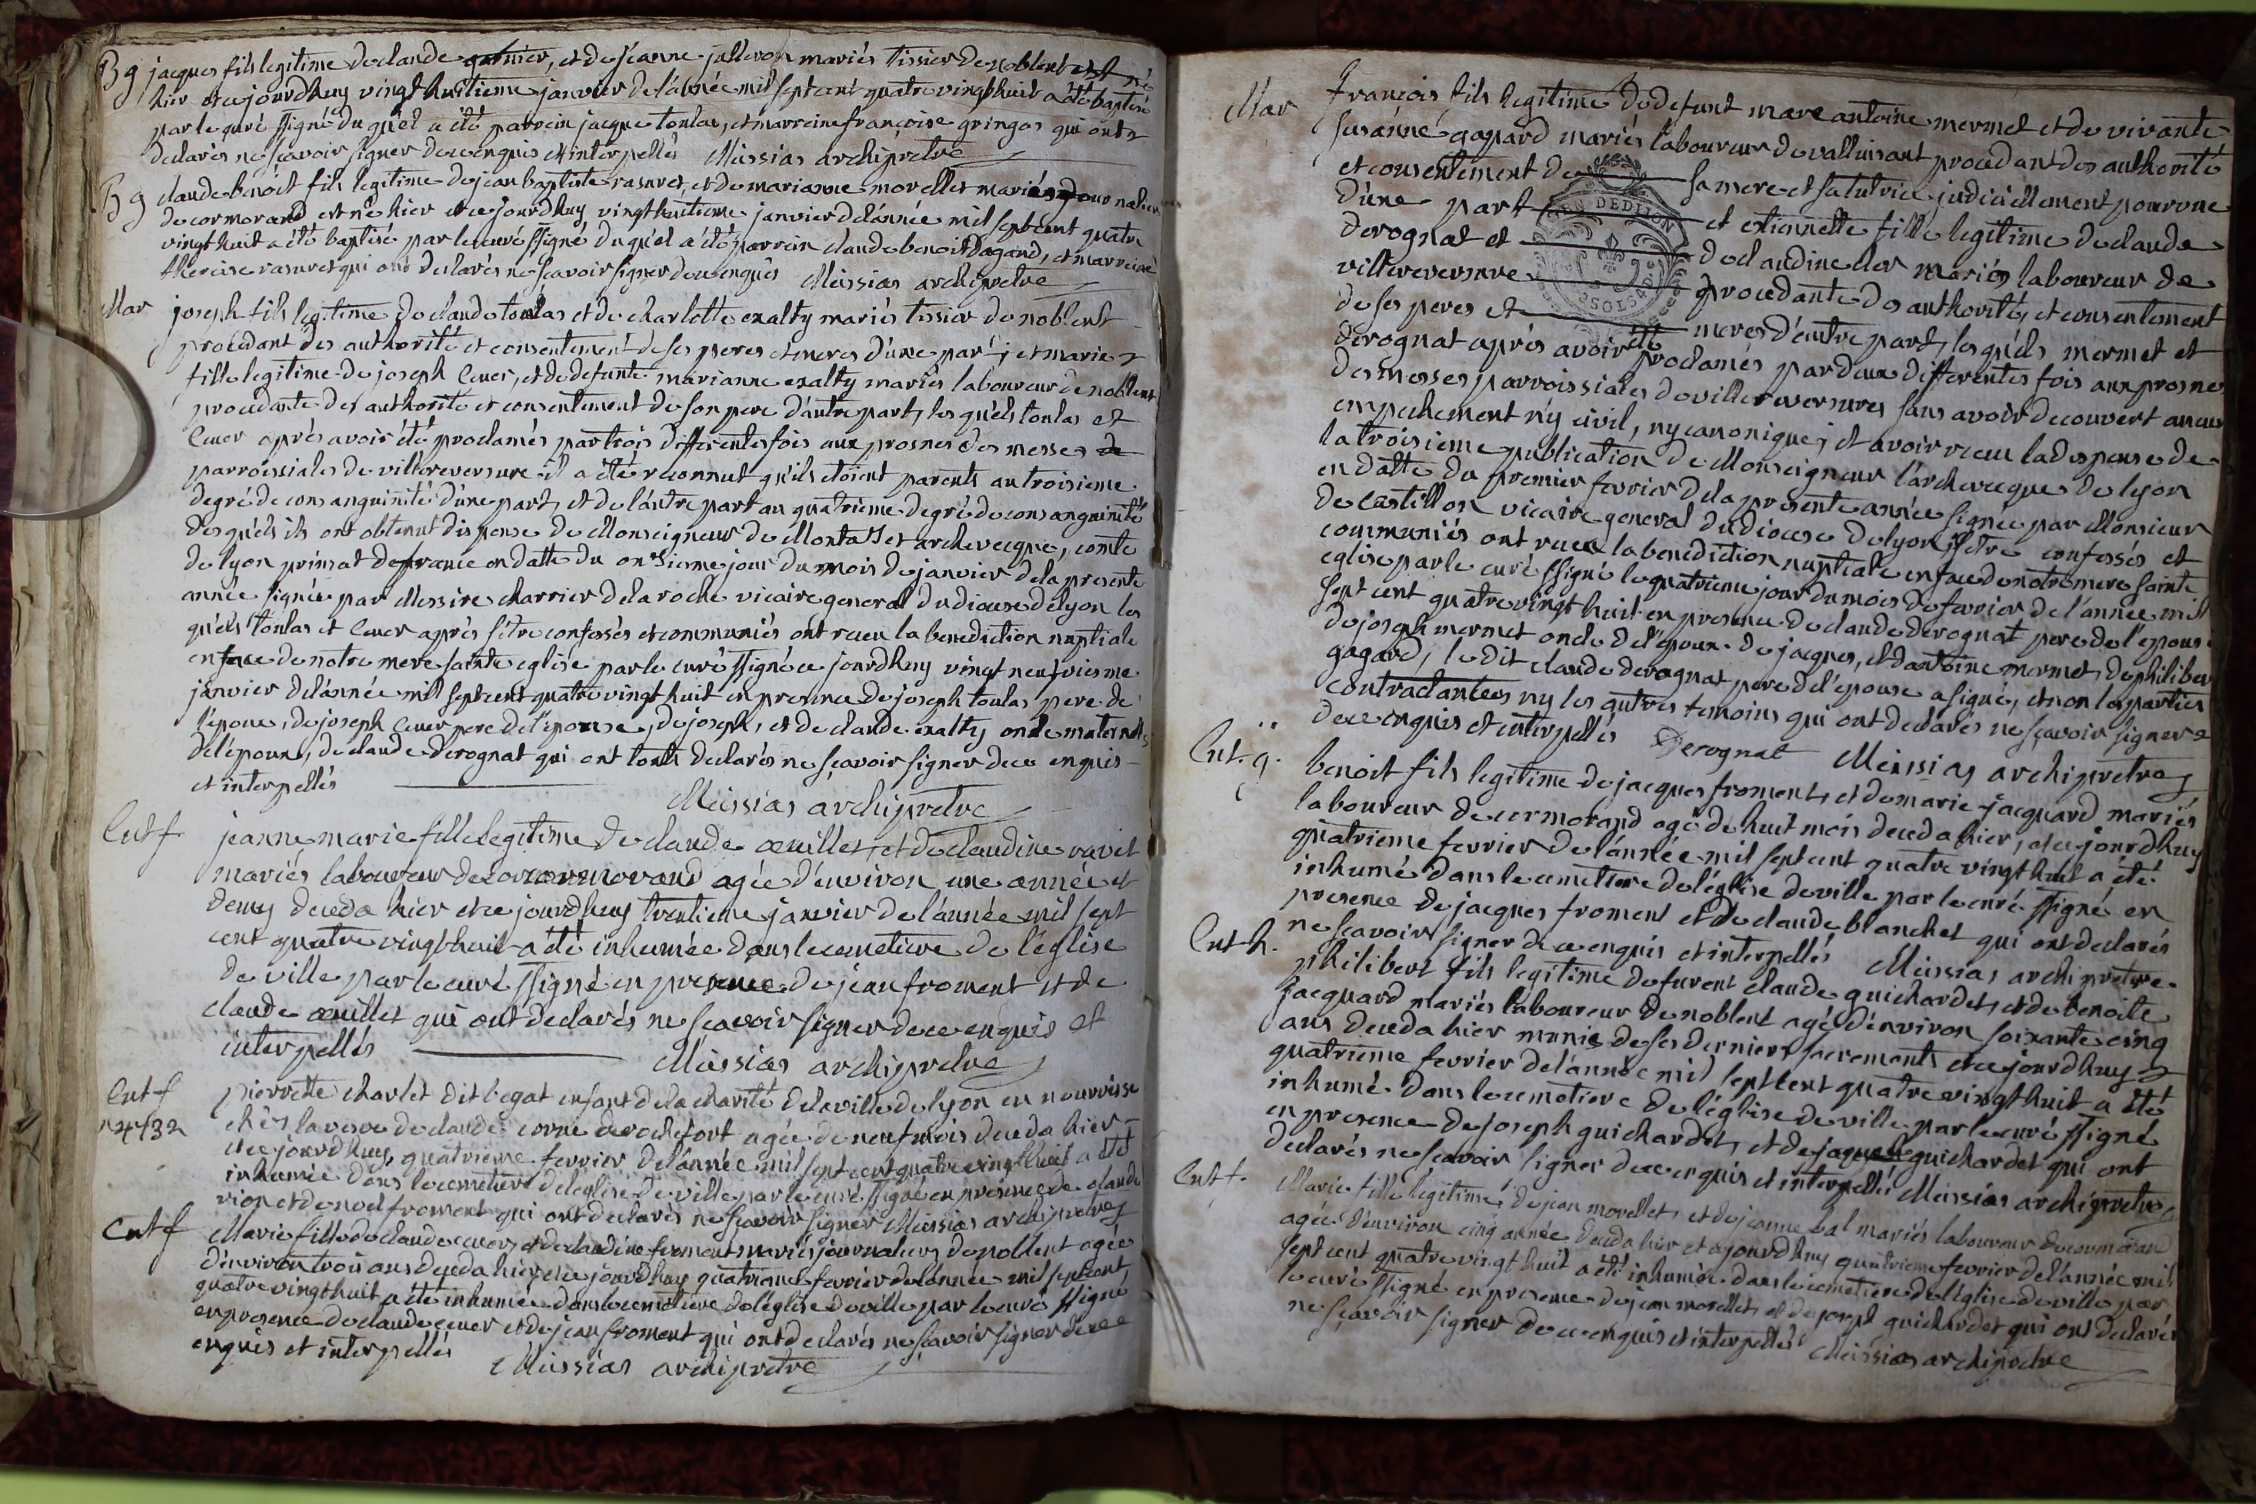 B g jacques fils legitime de claude garnier, et de jeanne jalleron mariés tissier de noblent est né
hier et cejourdhuy vingt huitieme janvier de l'année mil sept cent quatre vingt huit a été baptisé
par le curé ssigné du quel a été parrein jacque toulas, et marreine françoise gringos qui ont
declarés ne sçavoir signer de ce enquis et interpellés Messias archipretre
B g claude benoit fils legitime de jean baptiste rasuret, et de marianne morellet mariés journaliers
de cormorand est né hier et cejourdhuy vingt huitieme janvier de l'année mil sept cent quatre
vingt huit a été baptisé par le curé ssigné du quel a été parrein claude benoit dagand, et marreine
therese rasuret qui ont declarés ne sçavoir signer de ce enquis Messias archipretre
Mar joseph fils legitime de claude toulas et de charlotte exalty mariés tissier de noblent
procedant des authorité et consentement de ses peres et meres d'une part; et marie
fille legitime de joseph cuer, et de defunte marianne exalty mariés laboureur de noblent
procedante des authorité et consentement de son pere d'autre part, les quels toulas et
cuer aprés avoir été proclamés par trois differentes fois aux prosnes des messes
parroissiales de villereversure il a été reconnut qu'ils etoient parents au troisieme
degré de consanguinité d'une part, et de l'autre part au quatrieme degré de consanguinité
des quels ils ont obtenut dispense de Monseigneur de Montazet archevecque, comte
de lyon primat de france en datte du onzieme jour du mois de janvier de la presente
année signée par Messire charrier de la roche vicaire general du diocese de lyon les
quels toulas et cuer aprés s'être confessés et communiés ont receu la benediction nuptiale
en face de notre mere sainte eglise par le curé ssigné ce jourdhuy vingt neufvieme
janvier de l'année mil sept cent quatre vingt huit en presence de joseph toulas pere de
l'epoux, de joseph cuer pere de l'epouse, de joseph, et de claude exalty oncle maternels
de l'epoux, de claude derognat qui ont touts declarés ne sçavoir signer de ce enquis
et interpellés Messias archipretre
Ent f jeanne marie fille legitime de claude œuillet, et de claudine ravet
mariés laboureur de cormorand agée d'environ une année et
demy deceda hier et ce jourdhuy trentieme janvier de l'année mil sept
cent quatre vingt huit a été inhumée dans le cemetiere de l'église
de ville par le curé ssigné en presence de jean froment et de
claude œuillet qui ont declarés ne sçavoir signer de ce enquis et
interpellés Messias archipretre
Ent f pierrette charlet dit begat enfant de la charité de la ville de lyon en nourrisse
n 4732 chés la vesve de claude corne de rochefort agée de neuf mois deceda hier
et ce jourdhuy quatrieme fevrier de l'année mil sept cent quatre vingt huit a été
inhumée dans le cemetiere de l'eglise de ville par le curé ssigné en presence de claude
vion et de noel froment qui ont declarés ne sçavoir signer Messias archipretre
Ent f Marie fille de claude cuer, et de claudine froment mariés journaliers de noblent agée
d'environ trois ans deceda hier et ce jourdhuy quatrieme fevrier de l'année mil sept cent
quatre vingt huit a été inhumée dans le cemetiere de l'église de ville par le curé ssigné
en presence de claude cuer et de jean froment qui ont declarés ne sçavoir signer de ce
enquis et interpellés Messias archipretre
Mar françois fils legitime de defunt marc antoine mermet et de vivante
susanne gagard mariés laboureur de valluisant procedant des authorité
et consentement de sa mere et sa tutrice judiciellement pourvue
d'une part et etiennette fille legitime de claude
derognat et de claudine cler mariés laboureur de
villereversure procedante des authorité, et consentement
de ses peres et meres d'autre part, les quels mermet et
derognat aprés avoir été proclamés par deux differentes fois aux prosnes
des messes parroissiales de villereversure sans avoir decouvert aucun
empechement n'y civil, ny canonique; et avoir receu la dispense de
la troisieme publication de Monseigneur l'archevecque de lyon
en datte du premier fevrier de la presente année signée par Monsieur
de castillon vicaire general du diocese de lyon, s'etre confessés et
communiés ont receu la benediction nuptiale en face de notre mere sainte
eglise par le curé ssigné le quatrieme jour du mois de fevrier de l'année mil
sept cent quatre vingt huit en presence de claude derognat pere de l'epouse
de joseph mermet oncle de l'epoux. de jacques, et d'antoine mermet, de philibert
gagard, le dit claude derognat pere de l'epouse a signé, et non les parties
contractantes ny les autres temoins qui ont declarés ne sçavoir signer
de ce enquis et interpellés Derognat Messias archipretre
Ent. g. benoit fils legitime de jacques froment, et de marie jacquard mariés
laboureur de cormorand agé de huit mois deceda hier, et ce jourdhuy
quatrieme fevrier de l'année mil sept cent quatre vingt huit a été
inhumé dans le cemetiere de l'église de ville par le curé ssigné en
presence de jacques froment et de claude blanchet qui ont declarés
ne sçavoir signer de ce enquis et interpellés Messias archipretre
Ent. h. philibert fils legitime de furent claude guichardet, et de benoite
jacquard mariés laboureur de noblent agé d'environ soixante cinq
ans deceda hier munis de ses derniers sacrements et ce jourdhuy
quatrieme fevrier de l'année mil sept cent quatre vingt huit a été
inhumé dans le cemetiere de l'église de ville par le curé ssigné
en presence de joseph guichardet, et de jaque guichardet qui ont
declarés ne sçavoir signer de ce enquis et interpellés Messias archipretre
Ent f. Marie fille legitime de jean morellet, et de jeanne bal mariés laboureur de cormorand
agée d'environ cinq année deceda hier et ce jourdhuy quatrieme fevrier de l'année mil
sept cent quatre vingt huit a été inhumée dans le cemetiere de l'église de ville par
le curé ssigné en presence de jean morellet, et de joseph guichardet qui ont declarés
ne sçavoir signer de ce enquis et interpellés Messias archipretre